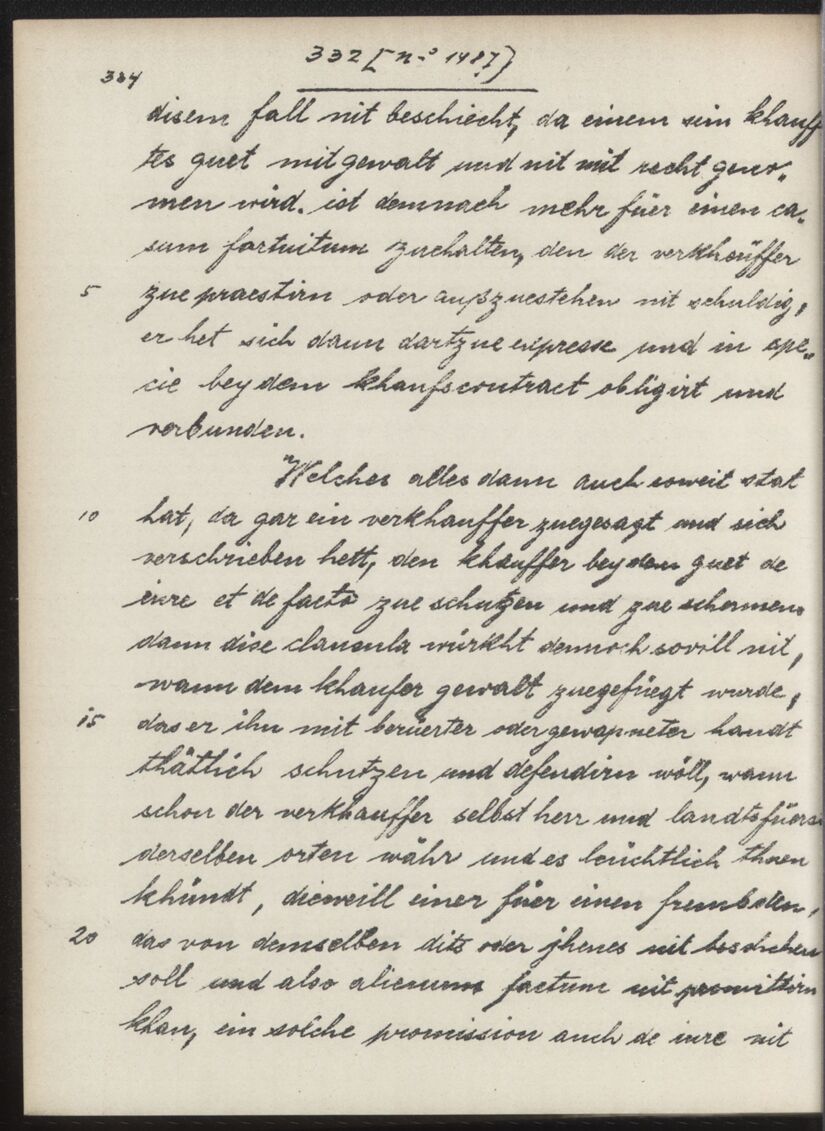 332 [nº 1487]
334
disem fall nit beschiecht, da einem sein khauff
tes guet mit gewalt und nit mit recht geno„
men wird. ist demnach mehr füer einen ca„
sum fortuitum zuehalten, den der verkheüffer
5 zue praestirn oder außzuestehen nit schuldig,
er het sich dann dartzue expresse und in spe„
cie bey dem khaufscontract obligirt und
verbunden.
Welches alles dann auch soweit stat
10 hat, da gar ein verkhauffer zuegesagt und sich
verschrieben hett, den khauffer bey dem guet de
iure et de facto zue schutzen und zue schermen.
dann dise clausula würkht dennoch sovill nit,
wann dem khaufer gewalt zuegefüegt wurde,
15 das er ihn mit berüerter oder gewapneter handt
thättlich schutzen und defendirn wöll, wann
schon der verkhauffer selbst herr und landtsfüers
derselben orten währ und es leüchtlich thuen
khündt, dieweill einer füer einen frembden,
20 das von demselben dits oder jhenes nit beschehen
soll und also alienum factum nit promittirn
khan, ein solche promission auch de iure nit